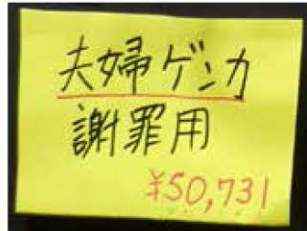 夫婦ゲンカ
謝罪用
¥50,731